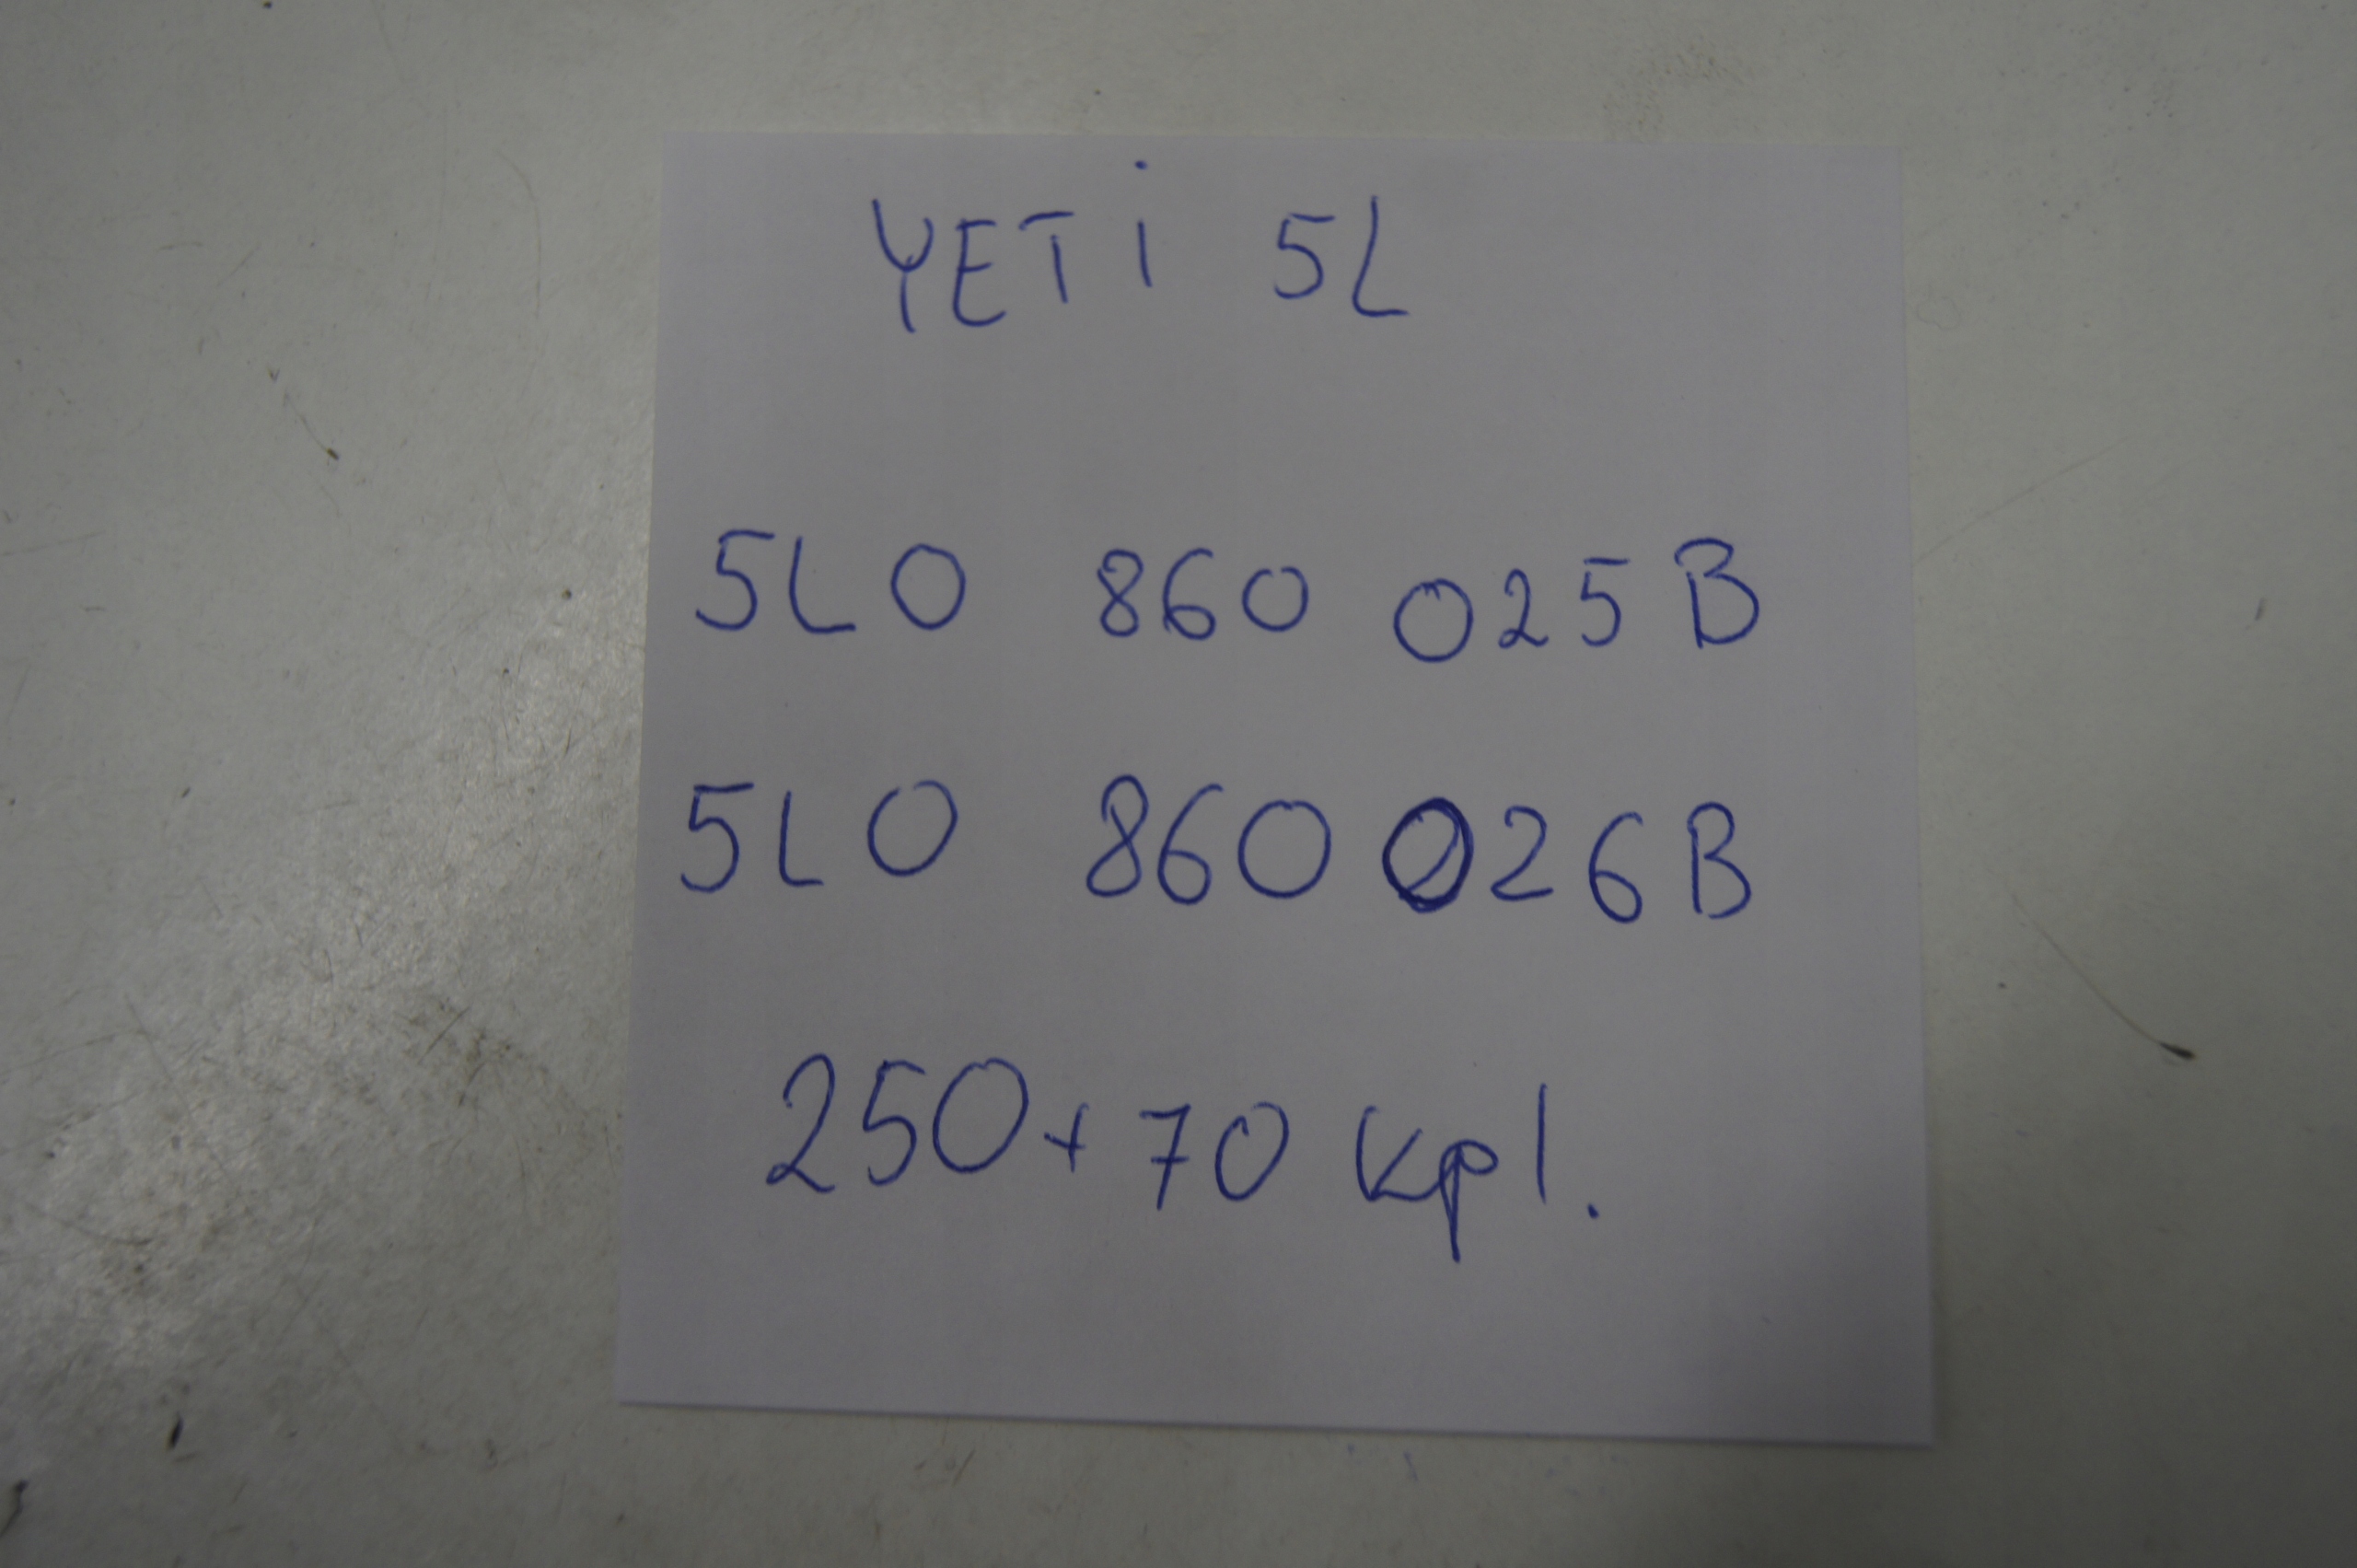 YETi 5L
5L0 860 025 B
5L0 860 026 B
250 + 70 kpl.